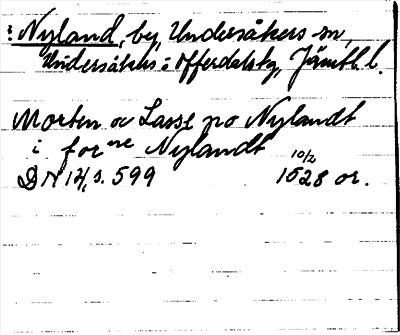 : Nyland, by, Undersåkers sn,
Undersåkers o. Offerdalstg, Jämtl. l.
Morten oc Lasse po Nylandt
i for ne Nylandt
DN 14, s. 599 10/2 1528 or.